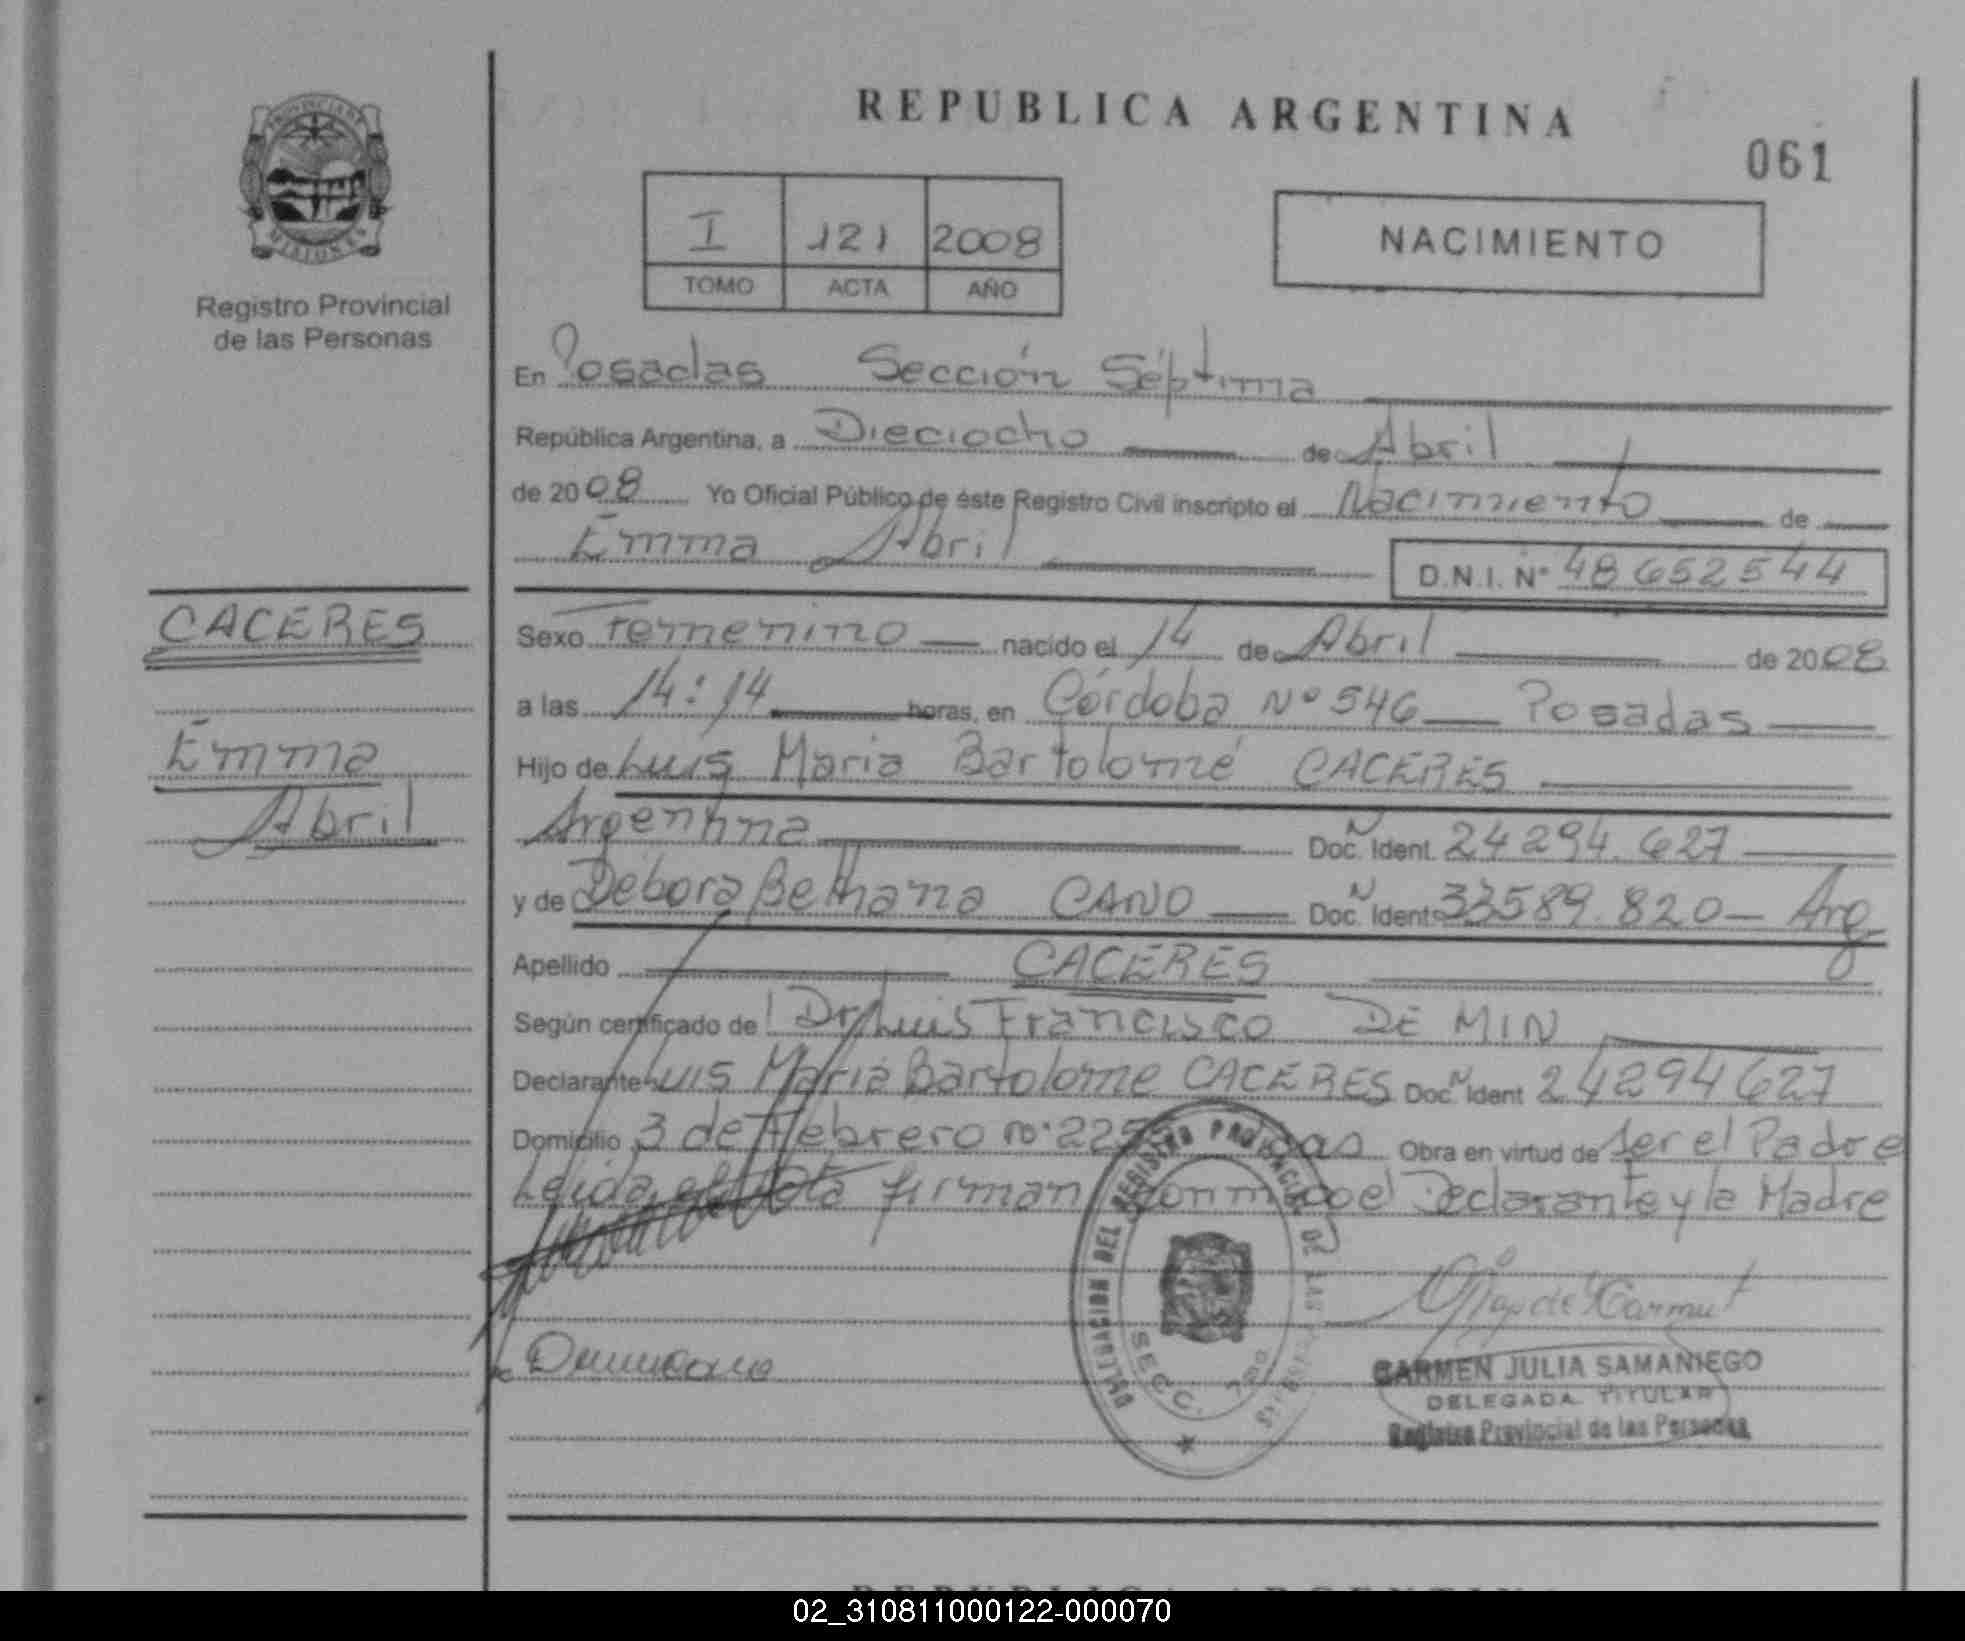 REPUBLICA ARGENTINA
061
PROVINCIA DE MISIONES
Registro Provincial
de las Personas
I 121 2008
TOMO ACTA AÑO
NACIMIENTO
En Posadas Sección Séptima
República Argentina, a Dieciocho de Abril
de 2008 Yo Oficial Público de éste Registro Civil inscripto el Nacimiento de
Emma Abril D.N.I. Nº 48652544
CACERES
Emma
Abril
Sexo Femenino nacido el 14 de Abril de 2008
a las 14:14 horas, en Córdoba Nº 546 Posadas
Hijo de Luis Maria Bartolomé CACERES
Argentina Doc. Ident. 24294.627
y de Débora Bethana CANO Doc. Ident. 33589.820 - Arg
Apellido CACERES
Según certificado de Dr Luis Francisco DE MIN
Declarante Luis Maria Bartolome CACERES Doc. Ident 24294627
Domicilio 3 de Febrero nº 225 Obra en virtud de ser el Padre
Leida el Acta firman conmigo el Declarante y la Madre
DELEGACION DEL REGISTRO PROVINCIAL DE LAS PERSONAS
SECC. 7ma
CARMEN JULIA SAMANIEGO
DELEGADA TITULAR
Registro Provincial de las Personas
REPUBLICA ARGENTINA
02_310811000122-000070